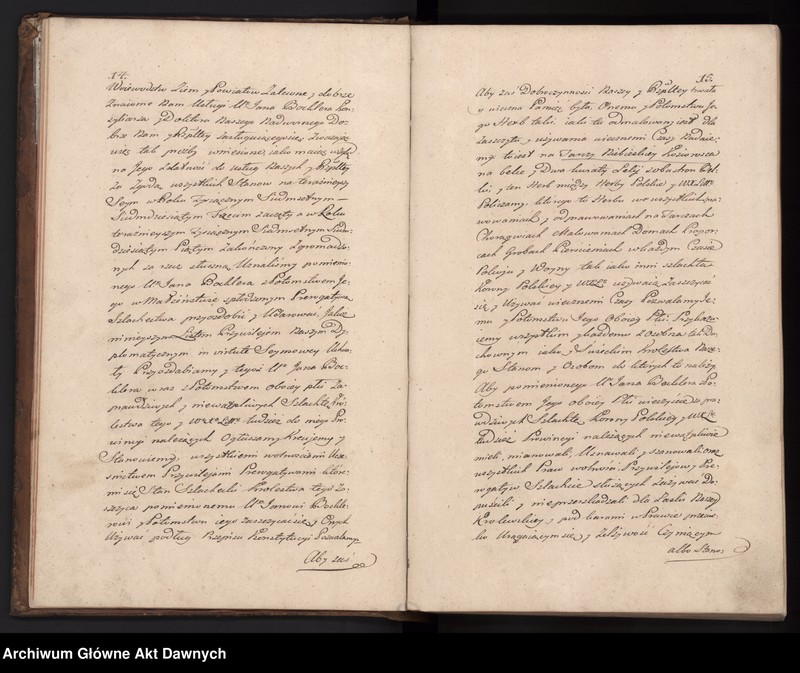 14.
Woiewodztw Ziem y Powiatow Zalecone, y dobrze
Znaiome Nam Usługi Ur Jana Bochlera Kon-
syliarza y Doktora Naszego Nadwornego Do-
brze Nam y Rpltey zasługuiącego się Zważaiąc
więc tak prozby wniesione, iako maiąc wzgląd
na Jego zdatność do usług Naszych y Rpltey
Za Zgodą wszystkich Stanow na teraznieyszy
Seym w Roku Tysiącznym Siedmsetnym
Siedmdziesiątym Trzecim zaczęty a w Roku
teraznieyszym Tysiącznym Siedmsetnym Siedm-
dziesiątym Piątym Zakończony Zgromadzo-
nych za rzecz słuszną Uznaliśmy pomienio-
nego Ur Jana Bochlera z Potomstwem Je-
go w Małżeństwie spłodzonym Prerogatywą
Szlachectwa przyozdobić y Udarować, Jakoż
ninieyszym Listem Przywileiem Naszym Dy-
plomatycznym in virtute Seymowey Uchwa-
ły Przyozdabiamy y tegoż Ur Jana Boc-
hlera wraz z Potomstwem oboiey płci Za
prawdziwych y niewątpliwych Szlachtę Kró-
lestwa tego y W. Xa Litt tudzież do niego Pro-
wincyi należących Ogłaszamy Kreujemy y
Stanowiemy, wszystkiemi wolnościami Ucze-
śnictwem Przywileiami Prerogatywami któré-
mi się Stan Szlachecki Krolestwa tego Za-
szczyca pomienionemu Ur Janowi Bochle-
rowi y Potomstwu iego zaszczycać się y Onych
Używać podług Przepisu Konstytucyi Pozwalamy
Aby zaś
15.
Aby zaś Dobroczynności Naszey y Rzpltey trwała
y wieczna Pamięć była, Onemu y Potomstwu Je-
go Herb taki, iaki tu odmalowany iest dla
Zaszczytu y używania wiecznemi Czasy Nadaie-
my to iest na Tarczy Niebieskiey
na belce y Dwa kwiaty Lelij z obu stron Bel-
ki, y ten Herb między Herby Polskie y W. X. Litt
Policzamy, którego to Herbu we wszystkich
y odprawowaniach na Tarczach
Chorągwiach Malowaniach Domach Propor-
cach Grobach Pierścieniach w każdym Czasie
Pokoju y Woyny tak iako inni szlachta
Korony Polskiey y W. X. L. używaią Zaszczycać
się y Używać wiecznemi Czasy Pozwalamy Je-
mu y Potomstwu Jego Oboiey Płci Przykazu-
iemy wszystkim y każdemu z osobna tak Du-
chownym iako y Swieckim Krolestwa Nasze-
go Stanom y Osobom do których to należy
Aby pomienionego Ur Jana Bochlera z Po-
tomstwem Jego oboiey Płci wieczyście za pra-
wdziwych Szlachtę Korony Polskiey y W. X. L.
tudzież Prowincyi należących niewątpliwie
mieli, mianowali, Uznawali, y szanowali, oraz
wszystkich Praw wolności Przywileiow y Pre-
rogatyw Szlachcie służących Zażywać Do-
puścili y nieprzeszkadzali dla Łaski Naszey
Krolewskiey, y pod karami w Prawie przeciw-
ko Urągaiącym się y Zelżywość Czyniącym
albo Stano-
Archiwum Główne Akt Dawnych